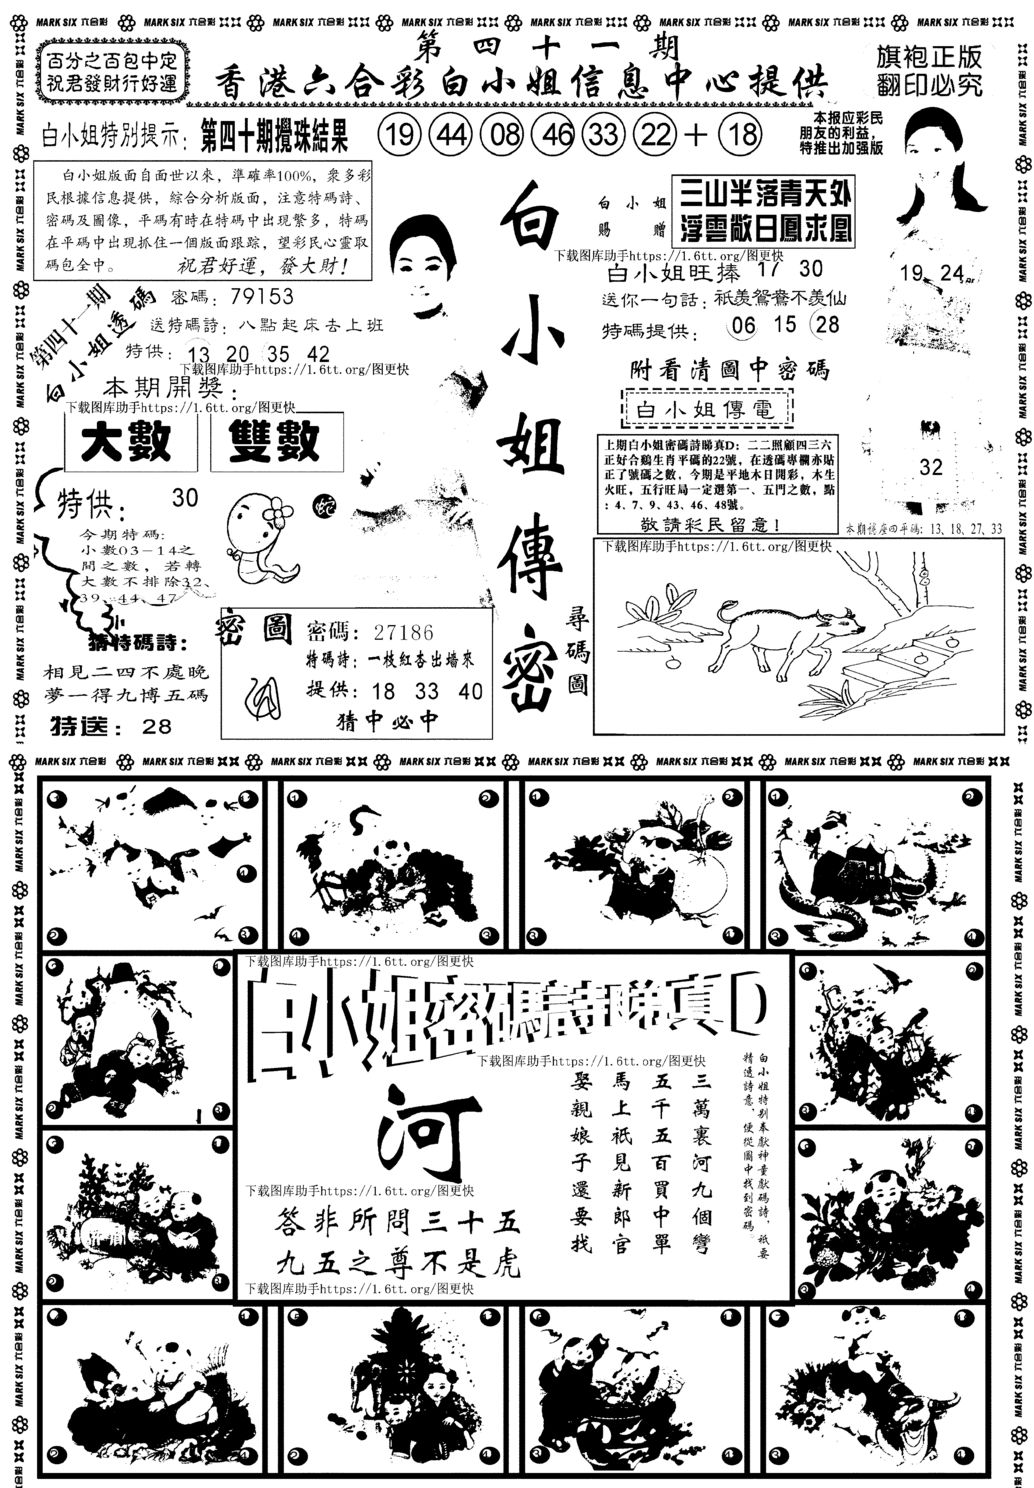 MARK SIX 六合彩
百分之百包中定
祝君發財行好運
第四十一期
香港六合彩白小姐信息中心提供
旗袍正版
翻印必究
白小姐特別提示：第四十期攪珠結果 19 44 08 46 33 22 + 18
本报应彩民
朋友的利益，
特推出加强版
白小姐版面自面世以來，準確率100%，衆多彩
民根據信息提供，綜合分析版面，注意特碼詩、
密碼及圖像，平碼有時在特碼中出現繁多，特碼
在平碼中出現抓住一個版面跟踪，望彩民心靈取
碼包全中。 祝君好運，發大財！
第四十一期
白小姐透碼
密碼：79153
送特碼詩：八點起床去上班
特供：13 20 35 42
下载图库助手https://1.6tt.org/图更快
本期開獎：
下载图库助手https://1.6tt.org/图更快
大數 雙數
特供：30
今期特碼：
小數03-14之
間之數，若轉
大數不排除32、
39、44、47
蛇
猜特碼詩：
相見二四不處晚
夢一得九博五碼
特送：28
密圖
密碼：27186
特碼詩：一枝紅杏出墙來
提供：18 33 40
猜中必中
白小姐傳密
白小姐
賜贈
三山半落青天外
浮雲敝日鳳求凰
下载图库助手https://1.6tt.org/图更快
白小姐旺捧 17 30
送你一句話：祇羡鴛鴦不羡仙
特碼提供：06 15 28
附看清圖中密碼
白小姐傳電
上期白小姐密碼詩睇真D：二二照顧四三六
正好合鷄生肖平碼的22號，在透碼專欄亦貼
正了號碼之數，今期是平地木日開彩，木生
火旺，五行旺局一定選第一、五門之數，點
：4、7、9、43、46、48號。
敬請彩民留意！
19 24
32
本期後座四平碼：13、18、27、33
下载图库助手https://1.6tt.org/图更快
尋碼圖
MARK SIX 六合彩
下载图库助手https://1.6tt.org/图更快
白小姐密碼詩睇真D
下载图库助手https://1.6tt.org/图更快
白小姐特別奉獻神童獻碼詩，祇要
精通詩意，便從圖中找到密碼
三萬裏河九個彎
五千五百買中單
馬上祇見新郎官
娶親娘子還要找
河
下载图库助手https://1.6tt.org/图更快
答非所問三十五
九五之尊不是虎
下载图库助手https://1.6tt.org/图更快